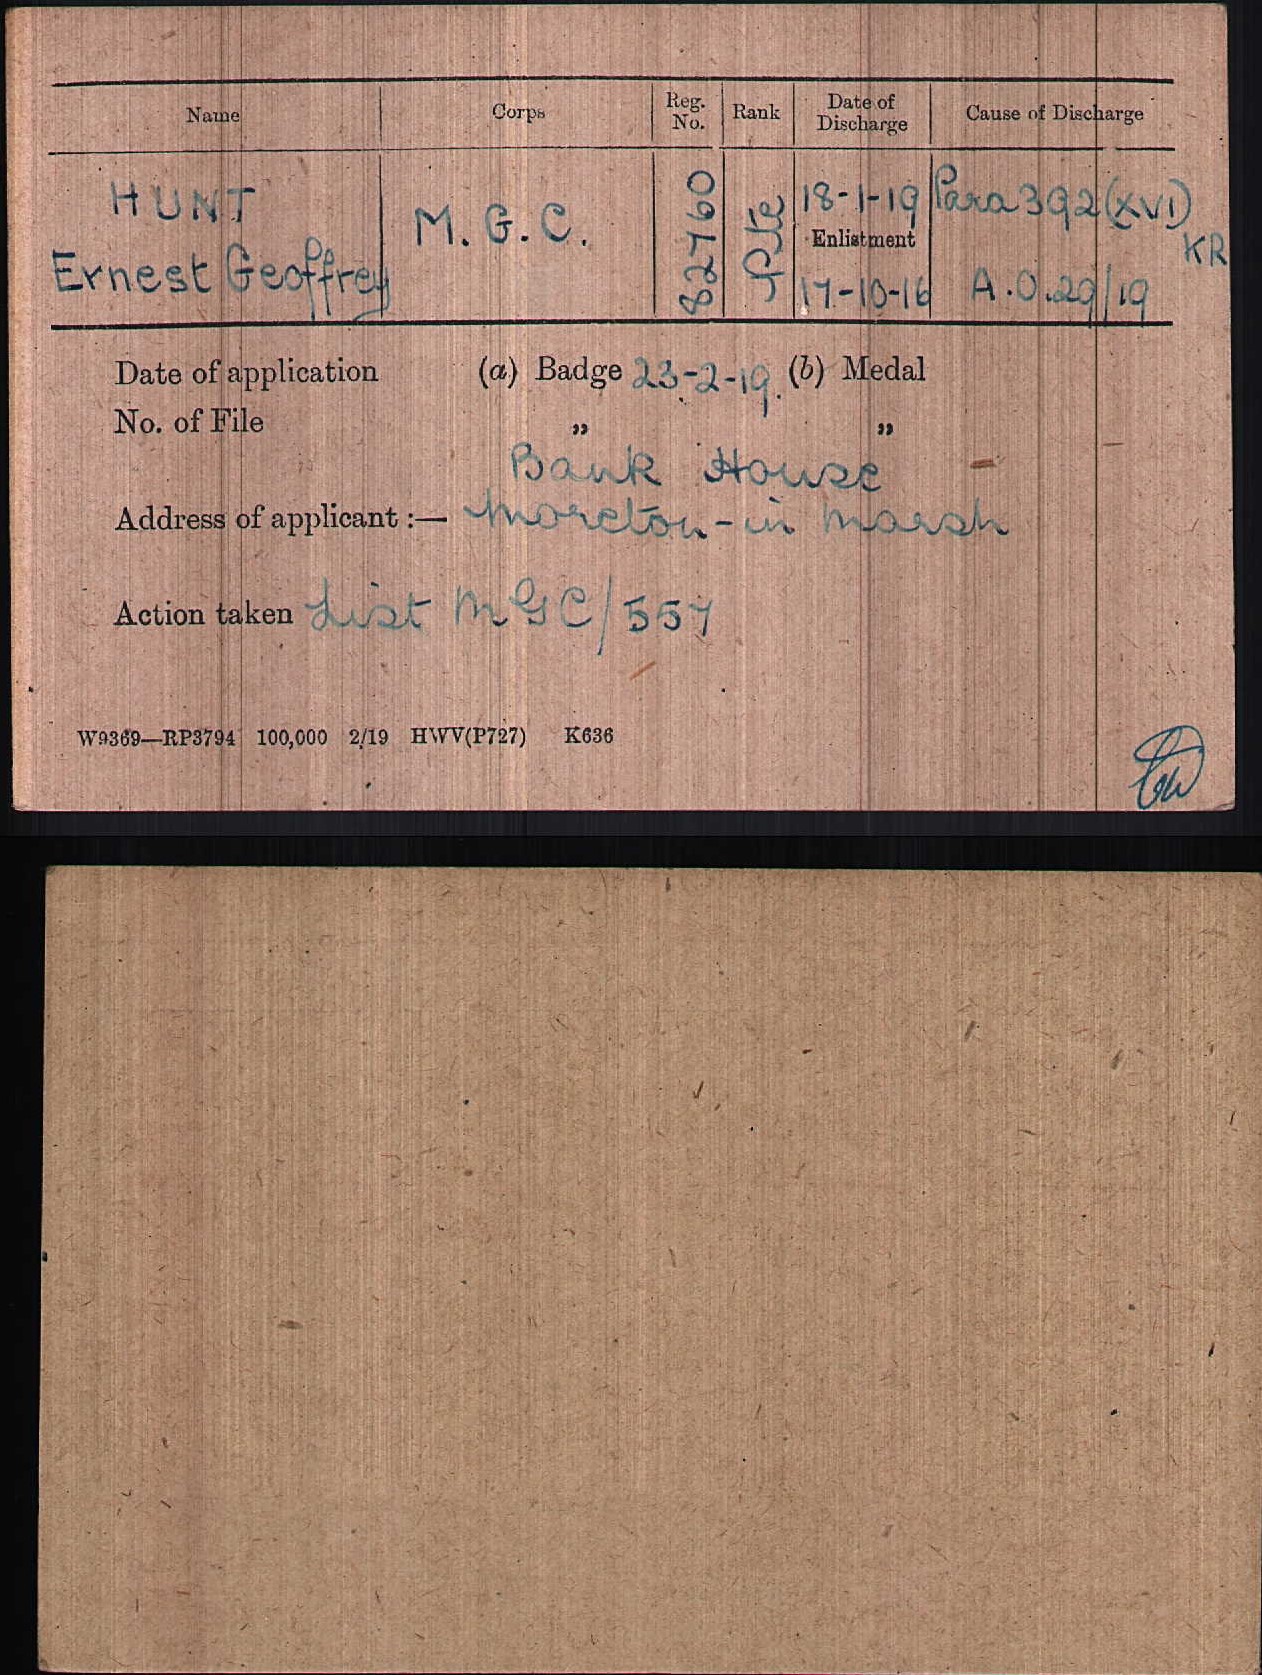 Name Corps Reg. No. Rank Date of Discharge Cause of Discharge
HUNT
Ernest Geoffrey
M.G.C.
82760
Pte
18-1-19
Enlistment
17-10-16
Para 392 (XVI)
KR
A.O.29/19
Date of application (a) Badge 23-2-19. (b) Medal
No. of File „ „
Bank House
Address of applicant :— Moreton-in Marsh
Action taken List MGC/557
W9369—RP3794 100,000 2/19 HWV(P727) K636